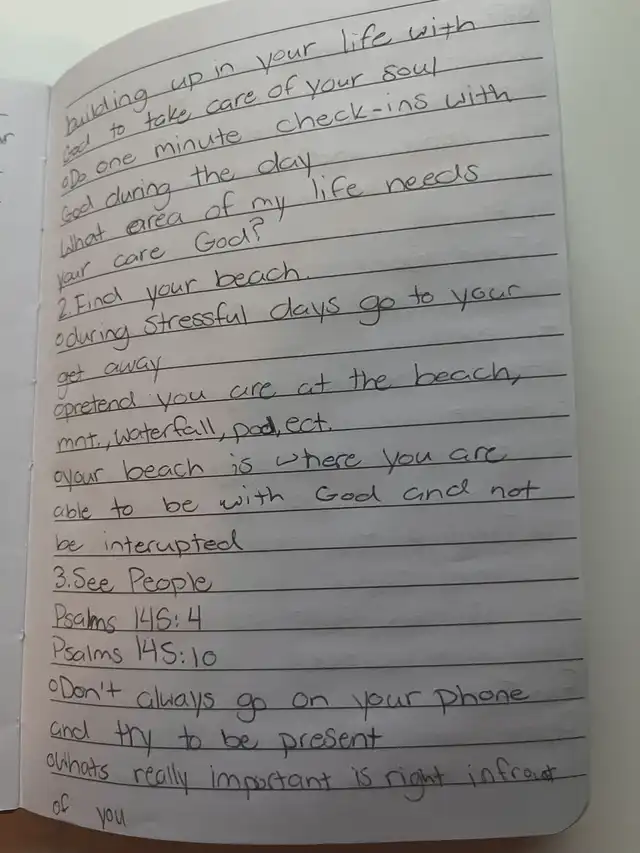 building up in your life with
God to take care of your soul
oDo one minute check-ins with
God during the day
What area of my life needs
your care God?
2.Find your beach.
oduring stressful days go to your
get away
opretend you are at the beach,
mnt., waterfall, pool, ect.
oyour beach is where you are
able to be with God and not
be interupted
3.See People
Psalms 145:4
Psalms 145:10
oDon't always go on your phone
and try to be present
oWhats really important is right infront
of you